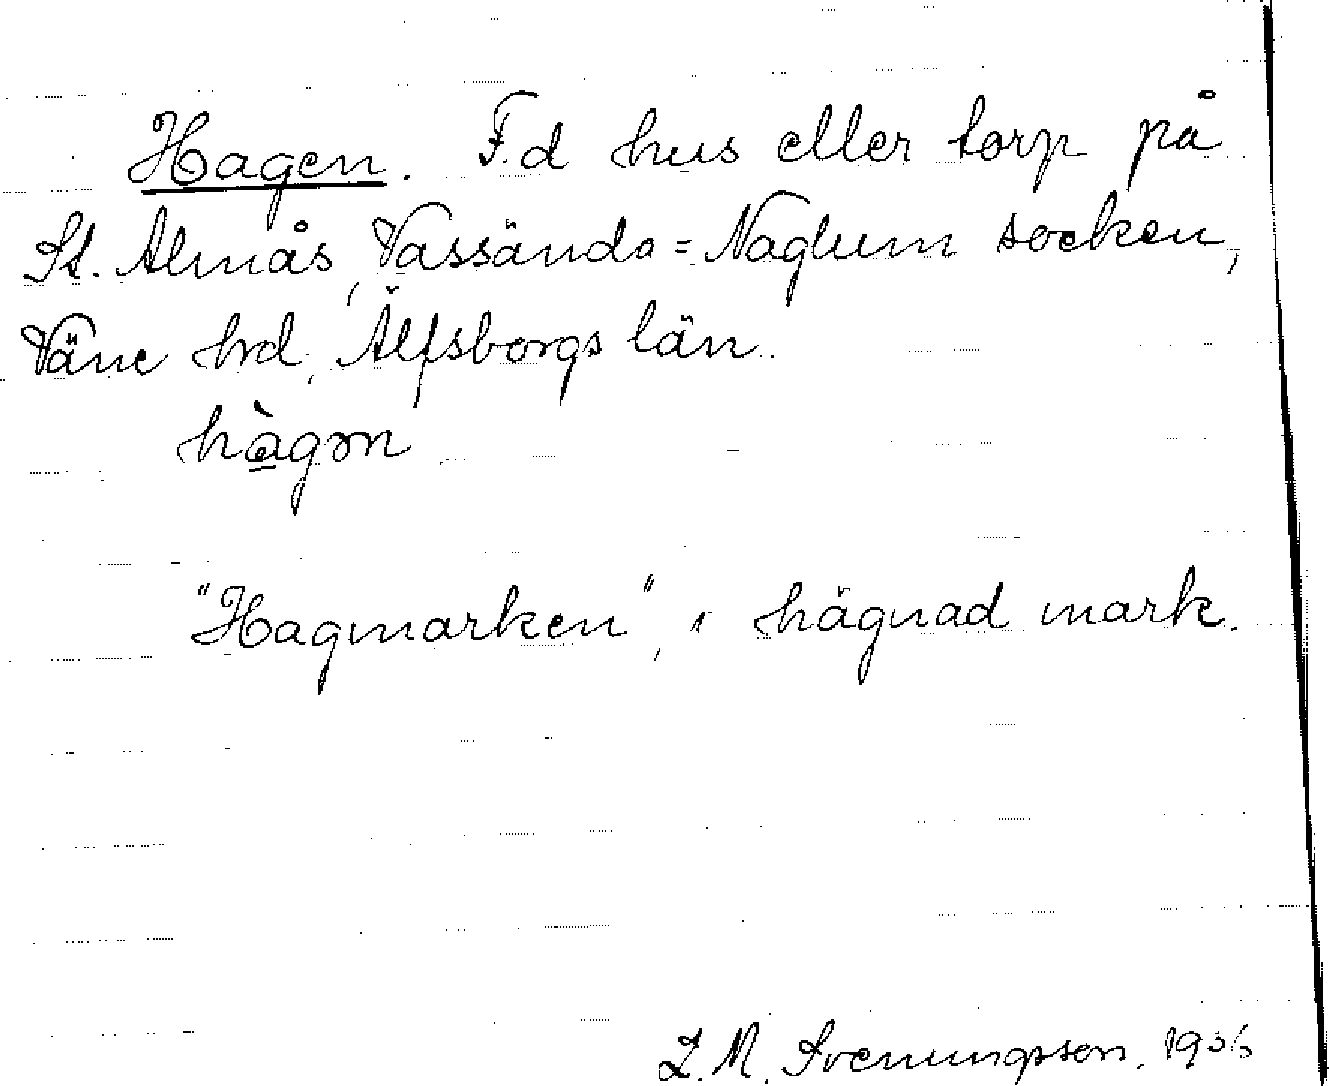 Hagen. F.d hus eller torp på
St. Almås, Vassända=Naglum socken,
Väne hrd, Älfsborgs län.
hàgɔn
"Hagmarken", i hägnad mark.
I. M. Svenungsson. 1936